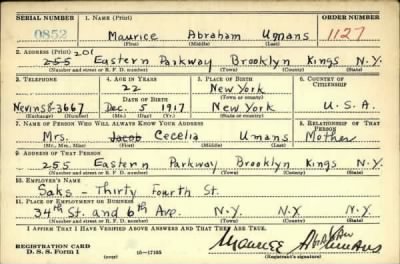 SERIAL NUMBER 1. NAME (Print) ORDER NUMBER
0852 Maurice Abraham Umans 1127
(First) (Middle) (Last)
2. ADDRESS (Print) 201
255 Eastern Parkway Brooklyn Kings N.Y.
(Number and street or R. F. D. number) (Town) (County) (State)
3. TELEPHONE 4. AGE IN YEARS 5. PLACE OF BIRTH 6. COUNTRY OF CITIZENSHIP
22 New York
DATE OF BIRTH (Town or county)
Nevins 8-3667 Dec. 5 1917 New York U.S.A.
(Exchange) (Number) (Mo.) (Day) (Yr.) (State or country)
7. NAME OF PERSON WHO WILL ALWAYS KNOW YOUR ADDRESS 8. RELATIONSHIP OF THAT PERSON
Mrs. Jacob Cecelia Umans Mother
(Mr., Mrs., Miss) (First) (Middle) (Last)
9. ADDRESS OF THAT PERSON
255 Eastern Parkway Brooklyn Kings N.Y.
(Number and street or R. F. D. number) (Town) (County) (State)
10. EMPLOYER'S NAME
Saks - Thirty Fourth St.
11. PLACE OF EMPLOYMENT OR BUSINESS
34th St. and 6th Ave. N.Y. N.Y. N.Y.
(Number and street or R. F. D. number) (Town) (County) (State)
I AFFIRM THAT I HAVE VERIFIED ABOVE ANSWERS AND THAT THEY ARE TRUE.
REGISTRATION CARD Maurice Abraham Umans
D. S. S. Form 1 (over) 16-17105 (Registrant's signature)